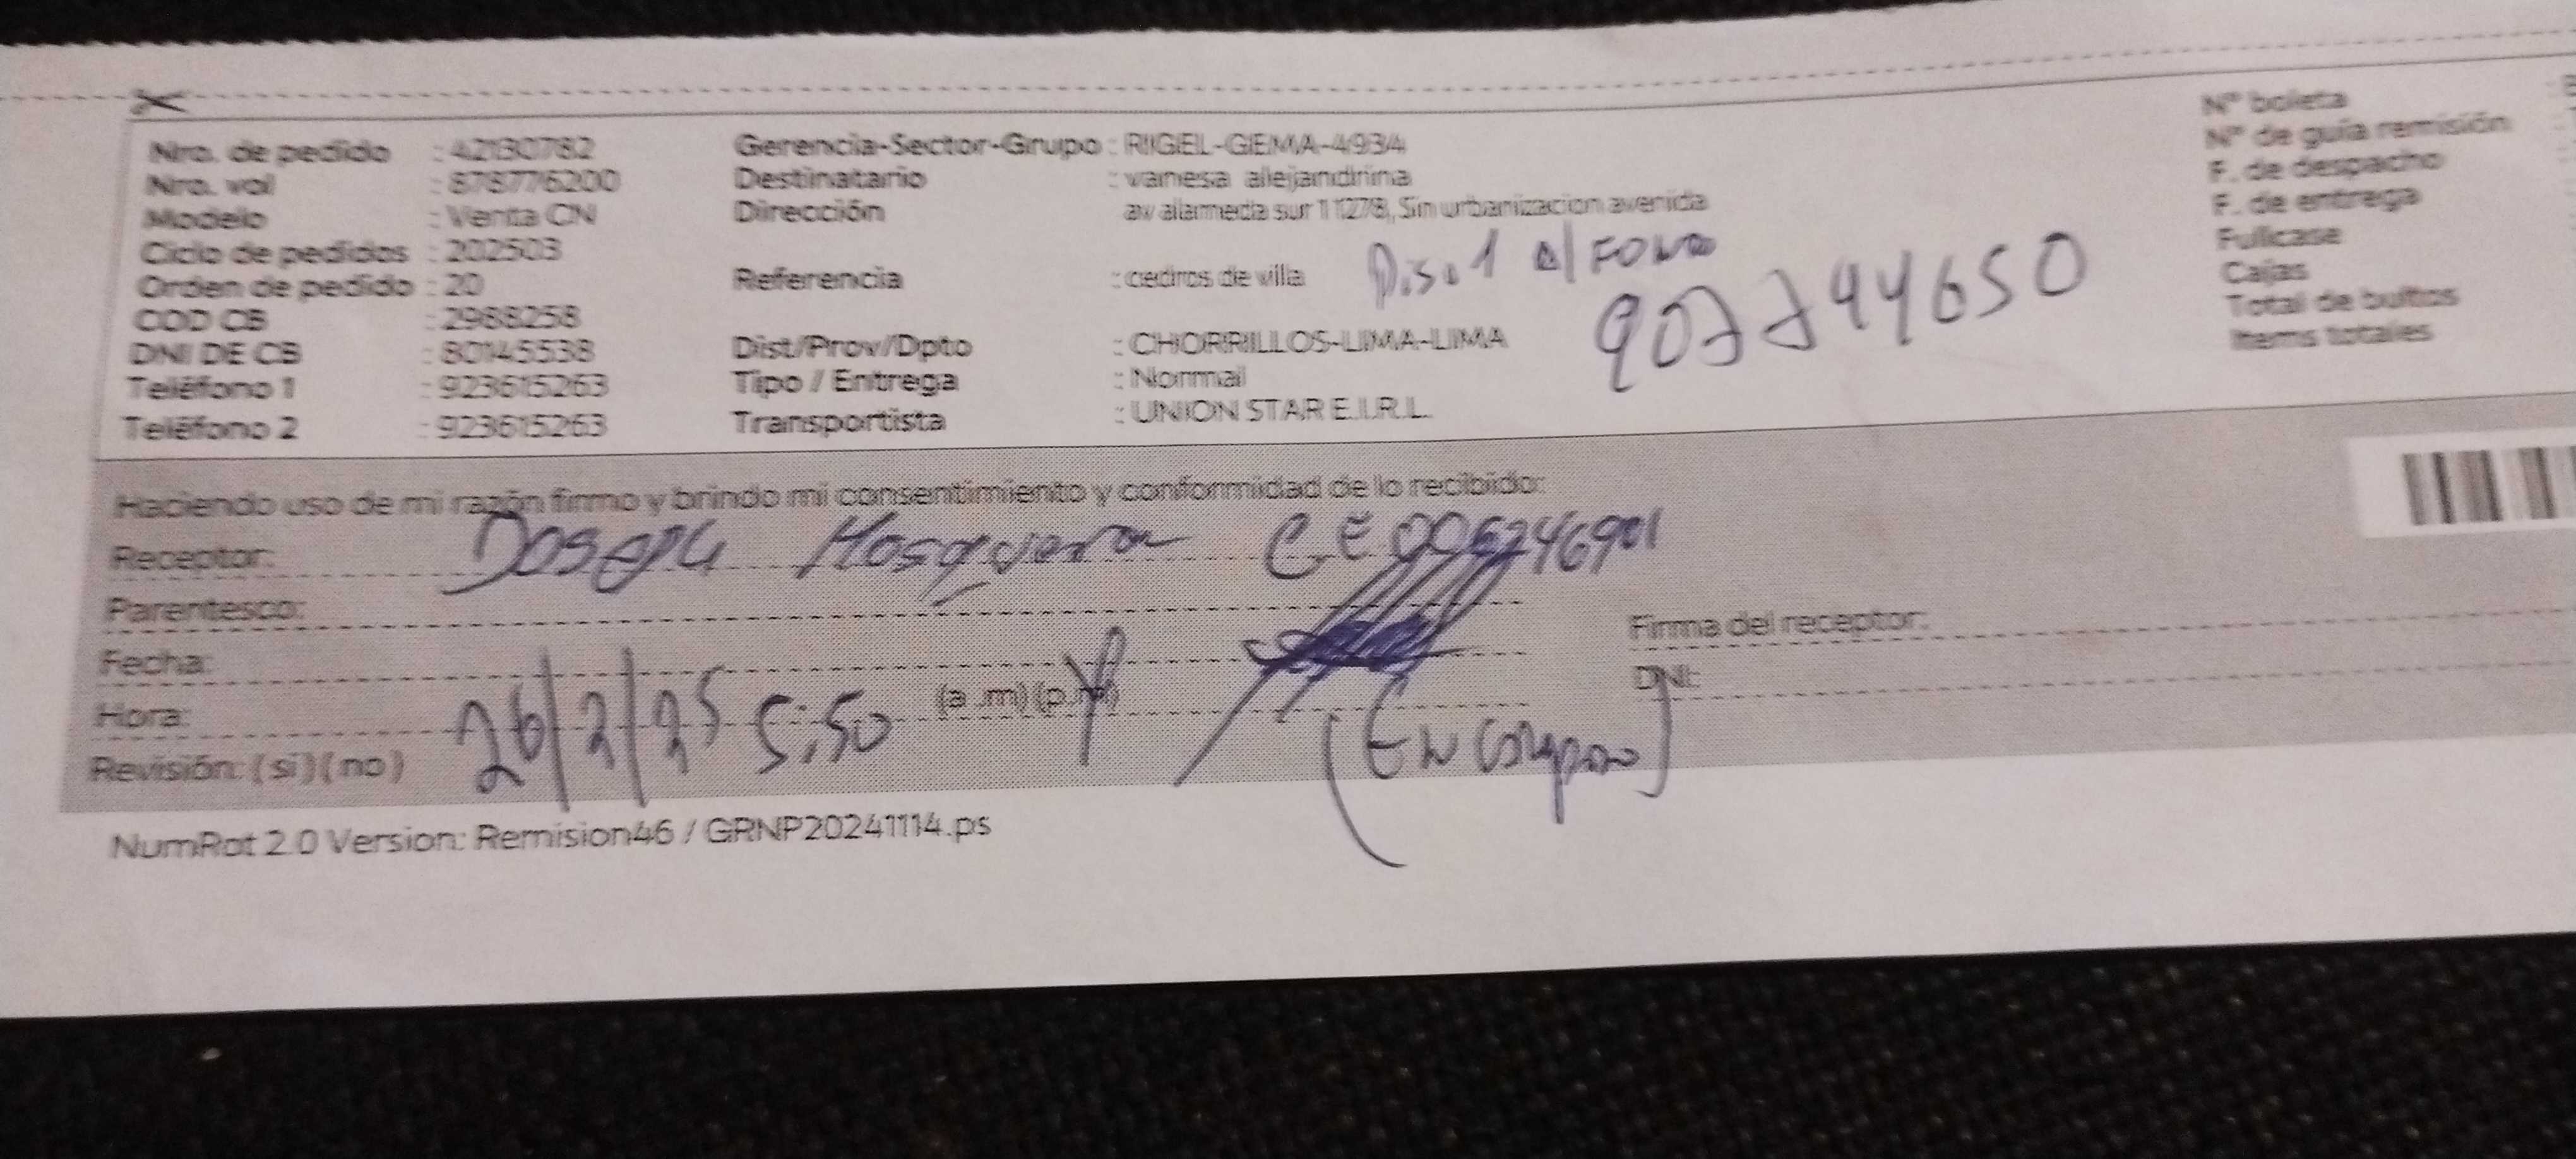 Nro. de pedido : 42130782
Nro. val : 878776200
Modelo : Venta CN
Ciclo de pedidos : 202503
Orden de pedido : 20
COD CB : 2988258
DNI DE CB : 80145538
Teléfono 1 : 923615263
Teléfono 2 : 923615263
Gerencia-Sector-Grupo : RIGEL-GEMA-4934
Destinatario : vanesa alejandrina
Dirección av alameda sur 1 1278, Sin urbanizacion avenida
Piso 1 al Fondo
Referencia : cedros de villa
Dist/Prov/Dpto : CHORRILLOS-LIMA-LIMA
Tipo / Entrega : Normal
Transportista : UNION STAR E.I.R.L.
N° boleta
N° de guía remisión
F. de despacho
F. de entrega
Fullcase
Cajas
Total de bultos
Items totales
Haciendo uso de mi razón firmo y brindo mi consentimiento y conformidad de lo recibido:
Receptor: Joseph Mosquera CE
Parentesco:
Fecha:
Hora: 26/2/25 5:50 (a .m) (p.m)
Revisión: ( si ) ( no )
Firma del receptor:
DNI:
NumRot 2.0 Version: Remision46 / GRNP20241114.ps